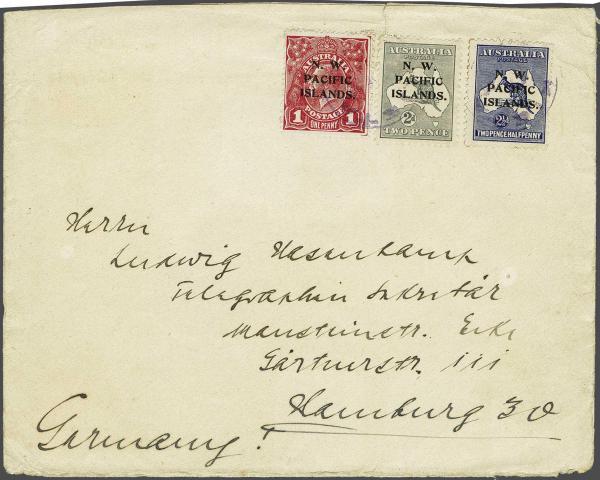 AUSTRALIA
N. W.
PACIFIC
ISLANDS.
POSTAGE
1 ONE PENNY 1
AUSTRALIA
POSTAGE
N. W.
PACIFIC
ISLANDS.
2d
TWO PENCE
AUSTRALIA
POSTAGE
N. W.
PACIFIC
ISLANDS.
2½d
TWO PENCE HALFPENNY
Herrn
Ludwig Hasenkamp
Telegraphen Sekretär
Mansteinstr. Ecke
Gärtnerstr. III
Hamburg 30
Germany!